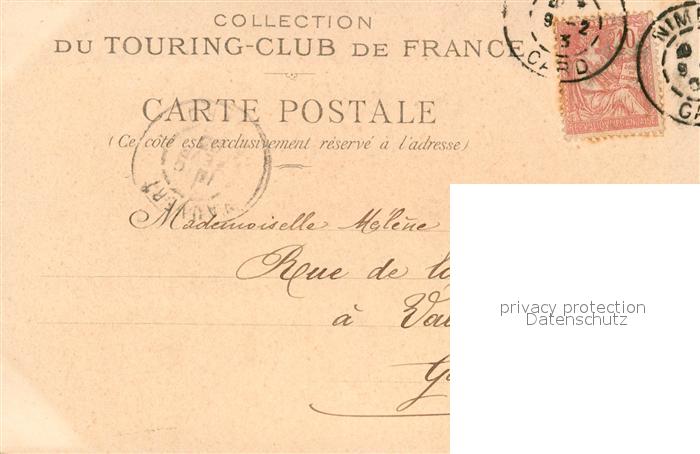 COLLECTION
DU TOURING-CLUB DE FRANCE
CARTE POSTALE
(Ce côté est exclusivement réservé à l'adresse)
NIM
VAUVERT
Mademoiselle Hélène
Rue de la
à Vau
privacy protection
Datenschutz